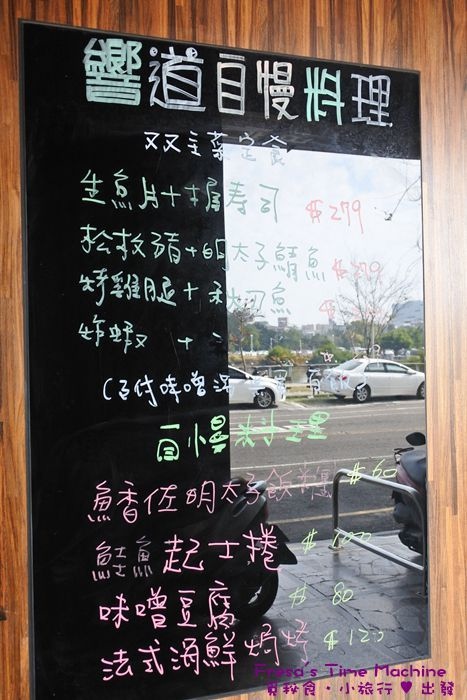 響道自慢料理
双主菜定食
生魚片+握壽司 $279
松板豬+明太子鯖魚 $279
烤雞腿+
炸蝦 +
(百付味噌湯
自慢料理
魚香佐明太子飯糰 $60
鮭魚起士捲 $100
味噌豆腐 $80
法式海鮮焗烤 $120
Fresa's Time Machine
覓秘食·小旅行♥出發